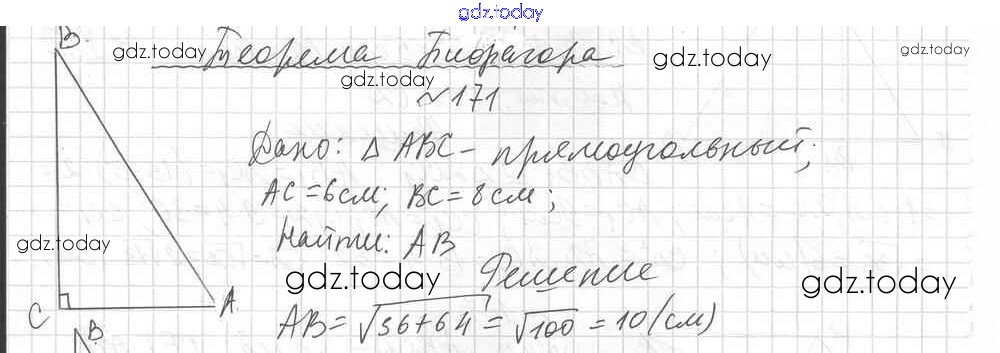 gdz.today
B
gdz.today Теорема Пифагора gdz.today gdz.today
gdz.today
~171
Дано: Δ ABC – прямоугольный;
AC = 6 см; BC = 8 см;
gdz.today
Найти: AB
gdz.today Решение gdz.today
C A
AB = √36+64 = √100 = 10 (см)
B